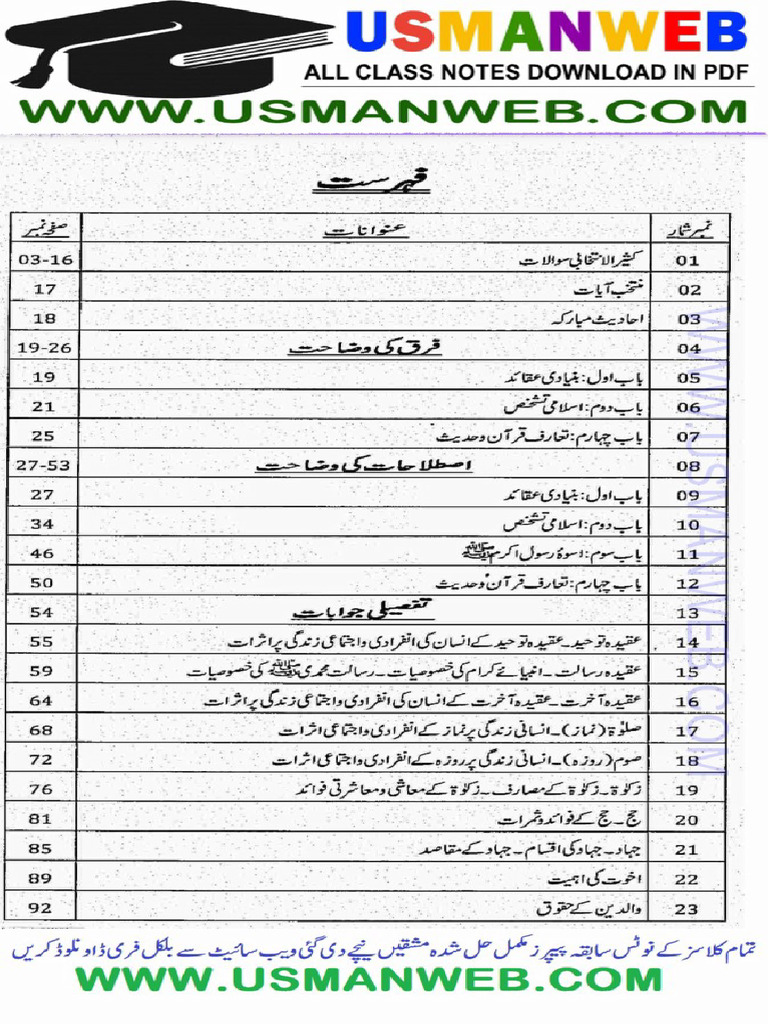 USMANWEB
ALL CLASS NOTES DOWNLOAD IN PDF
WWW.USMANWEB.COM
فہرست
نمبر شمار عنوانات صفحہ نمبر
01 کثیر الانتخابی سوالات 03-16
02 منتخب آیات 17
03 احادیث مبارکہ 18
04 فرق کی وضاحت 19-26
05 باب اول: بنیادی عقائد 19
06 باب دوم: اسلامی تشخص 21
07 باب چہارم: تعارف قرآن و حدیث 25
08 اصطلاحات کی وضاحت 27-53
09 باب اول: بنیادی عقائد 27
10 باب دوم: اسلامی تشخص 34
11 باب سوم: اسوۂ رسول اکرم ﷺ 46
12 باب چہارم: تعارف قرآن و حدیث 50
13 تفصیلی جوابات 54
14 عقیدہ توحید۔ عقیدہ توحید کے انسان کی انفرادی و اجتماعی زندگی پر اثرات 55
15 عقیدہ رسالت۔ انبیائے کرام کی خصوصیات۔ رسالت محمدی ﷺ کی خصوصیات 59
16 عقیدہ آخرت۔ عقیدہ آخرت کے انسان کی انفرادی و اجتماعی زندگی پر اثرات 64
17 صلوٰۃ (نماز)۔ انسانی زندگی پر نماز کے انفرادی و اجتماعی اثرات 68
18 صوم (روزہ)۔ انسانی زندگی پر روزہ کے انفرادی و اجتماعی اثرات 72
19 زکوٰۃ۔ زکوٰۃ کے مصارف۔ زکوٰۃ کے معاشی و معاشرتی فوائد 76
20 حج۔ حج کے فوائد و ثمرات 81
21 جہاد۔ جہاد کی اقسام۔ جہاد کے مقاصد 85
22 اخوت کی اہمیت 89
23 والدین کے حقوق 92
WWW.USMANWEB.COM
تمام کلاسز کے نوٹس سابقہ پیپرز مکمل حل شدہ مشقیں نیچے دی گئی ویب سائیٹ سے بلکل فری ڈاونلوڈ کریں
WWW.USMANWEB.COM